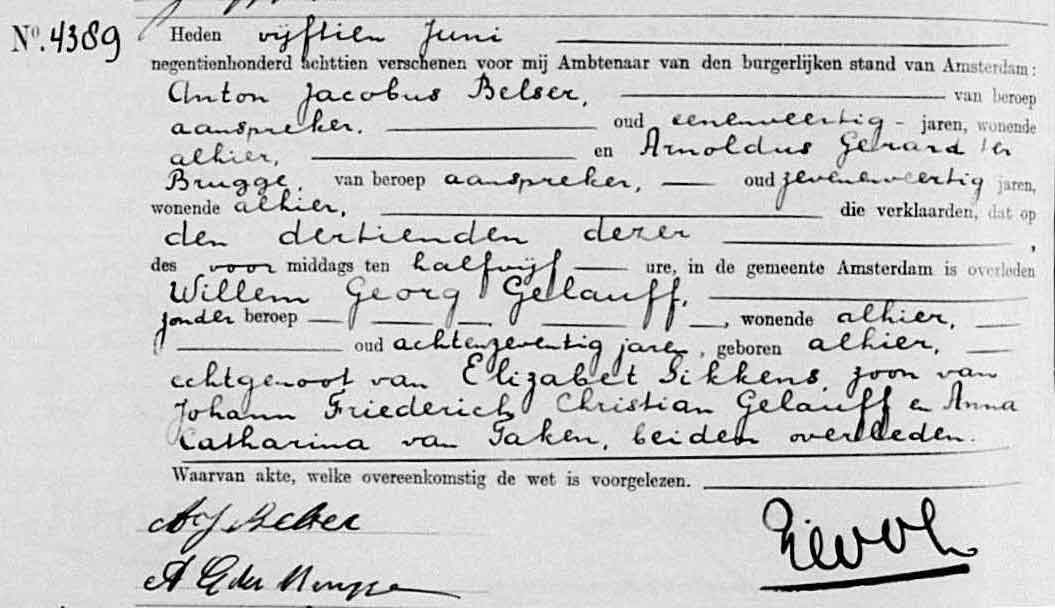 No. 4389 Heden vijftien Juni
negentienhonderd achttien verschenen voor mij Ambtenaar van den burgerlijken stand van Amsterdam:
Anton Jacobus Belser, van beroep
aanspreker, oud eenenveertig jaren, wonende
alhier, en Arnoldus Gerard ter
Brugge, van beroep aanspreker, oud zevenenveertig jaren,
wonende alhier, die verklaarden, dat op
den dertienden dezer,
des voor middags ten halfvijf ure, in de gemeente Amsterdam is overleden
Willem Georg Gelauff,
zonder beroep, wonende alhier,
oud achtenzeventig jaren, geboren alhier,
echtgenoot van Elizabet Sikkens, zoon van
Johann Friederich Christian Gelauff en Anna
Catharina van Taken, beiden overleden.
Waarvan akte, welke overeenkomstig de wet is voorgelezen.
AJ Belser